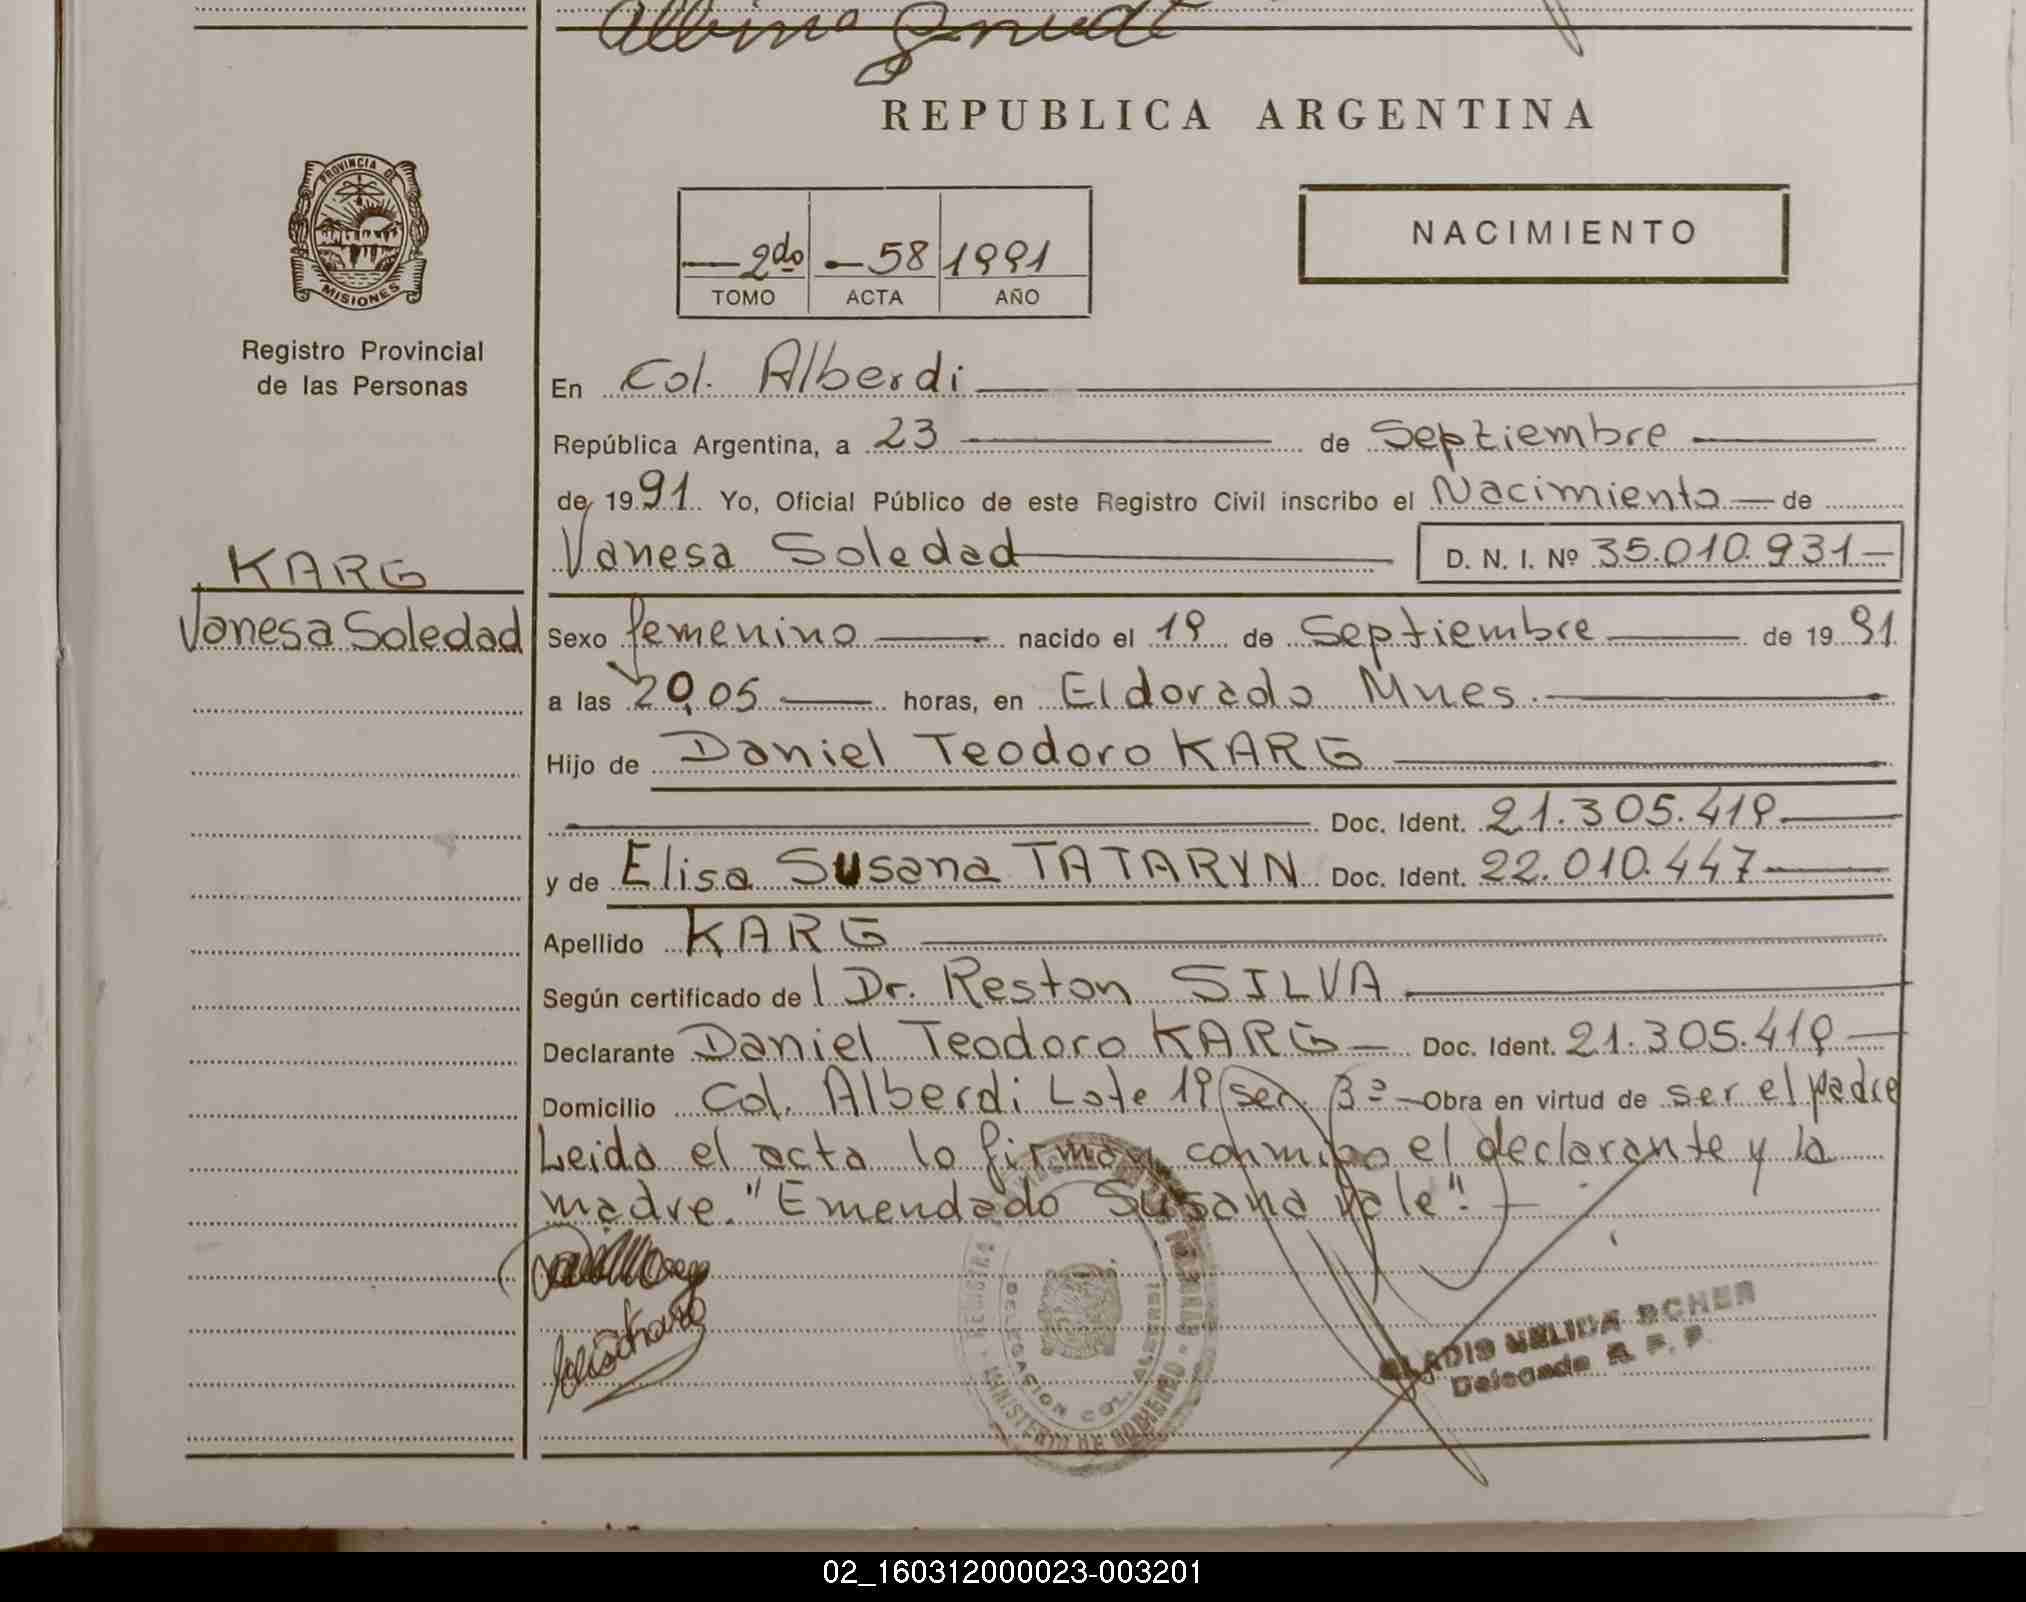 REPUBLICA ARGENTINA
PROVINCIA DE
MISIONES
Registro Provincial
de las Personas
2do 58 1991
TOMO ACTA AÑO
NACIMIENTO
En Col. Alberdi
República Argentina, a 23 de Septiembre
de 1991 Yo, Oficial Público de este Registro Civil inscribo el Nacimiento de
Vanesa Soledad D. N. I. Nº 35.010.931
KARG
Vanesa Soledad
Sexo femenino nacido el 19 de Septiembre de 1991
a las 20,05 horas, en Eldorado Mnes.
Hijo de Daniel Teodoro KARG
Doc. Ident. 21.305.419
y de Elisa Susana TATARYN Doc. Ident. 22.010.447
Apellido KARG
Según certificado de l Dr. Reston SILVA
Declarante Daniel Teodoro KARG Doc. Ident. 21.305.419
Domicilio Col. Alberdi Lote 19 sec. 3ª Obra en virtud de ser el padre
Leida el acta lo firman conmigo el declarante y la
madre. "Emendado Susana vale".
DELEGACION COL. ALBERDI
NELIDA
Delegada R. P. P.
02_160312000023-003201